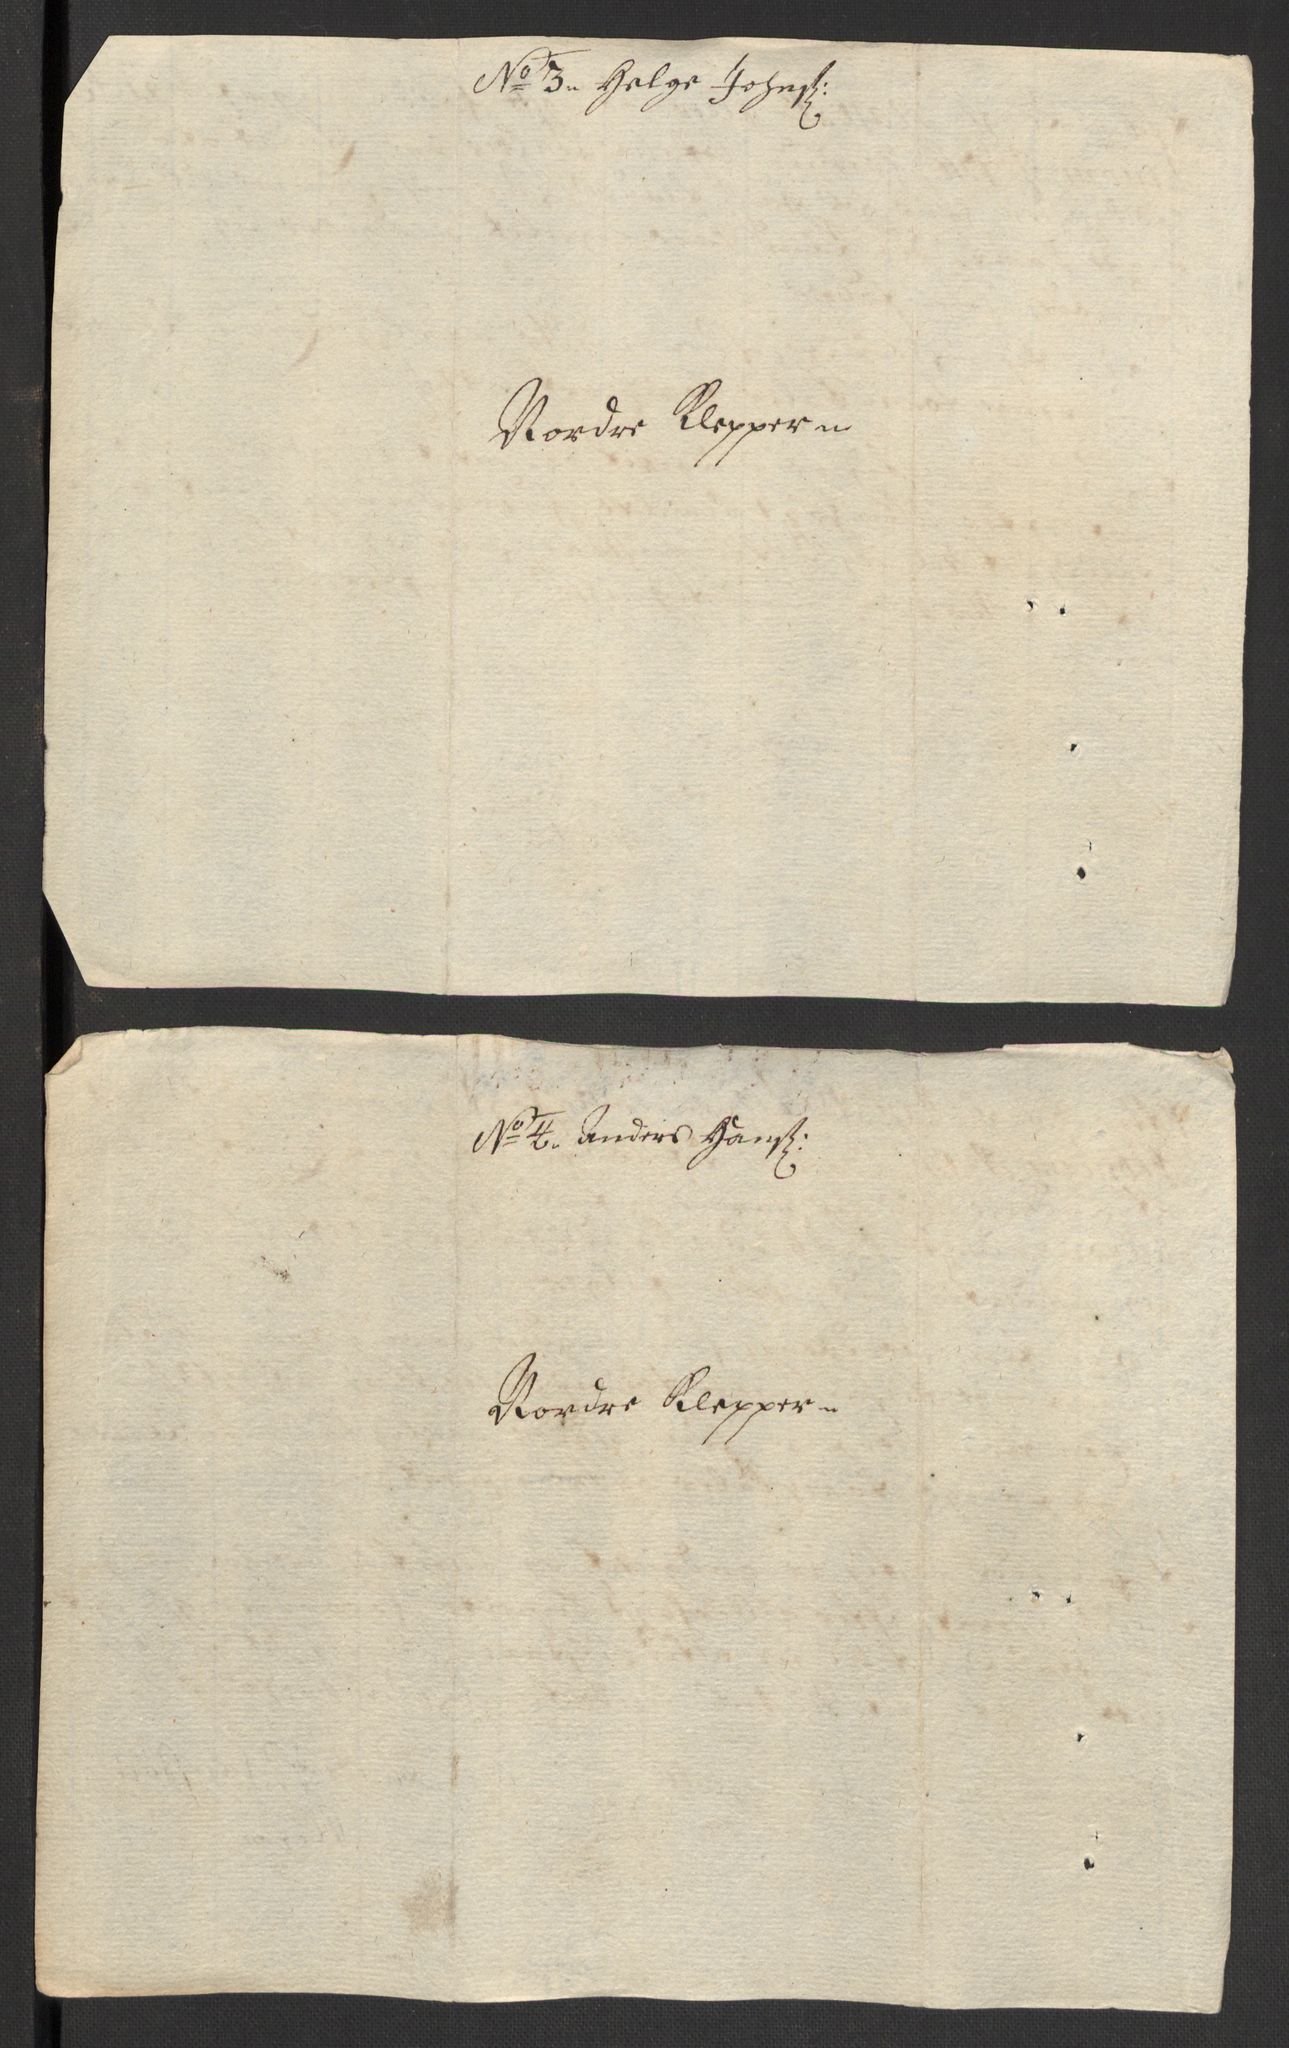 No 3. Helge Johnsz:
Nordre Klepper
No 4. Anders Hansz:
Nordre Klepper